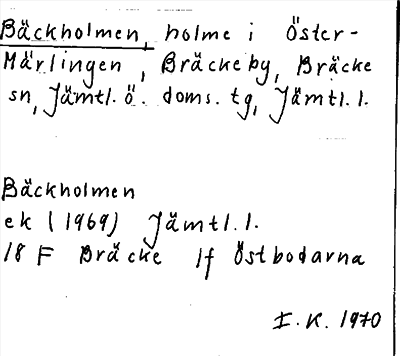 Bäckholmen, holme i Öster-
Märlingen, Bräckeby, Bräcke
sn, Jämtl. ö. doms. tg, Jämtl. l.
Bäckholmen
ek (1969) Jämtl. l.
18 F Bräcke 1f Östbodarna
I. K. 1970